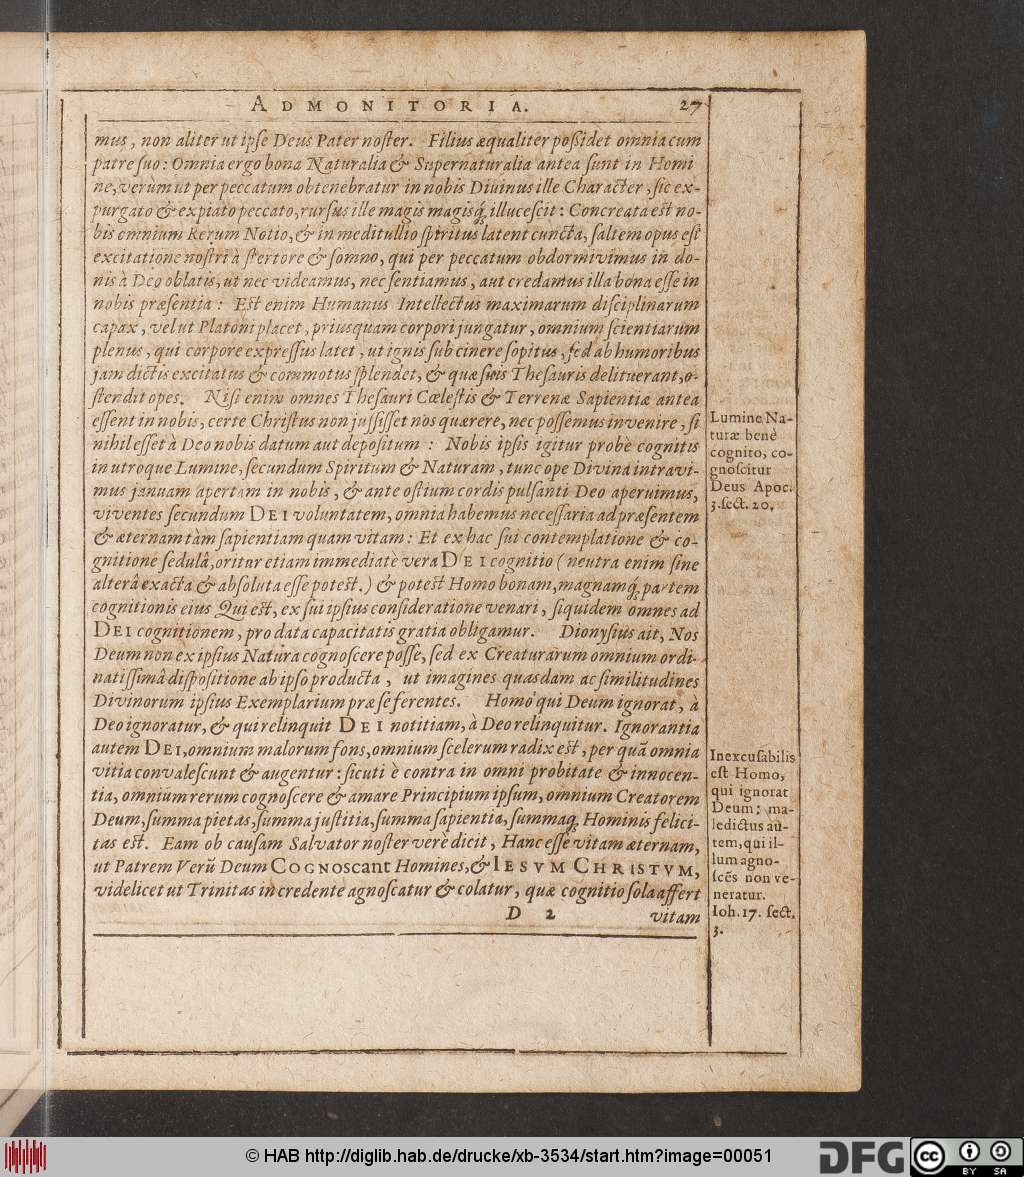 ADMONITORIA. 27
mus, non aliter ut ipſe Deus Pater noſter. Filius æqualiter poßidet omnia cum
patre ſuo: Omnia ergo bona Naturalia & Supernaturalia antea ſunt in Homi
ne, verùm ut per peccatum obtenebratur in nobis Divinus ille Character, ſic ex-
purgato & expiato peccato, rurſus ille magis magisq́; illuceſcit: Concreata eſt no-
bis omnium Rerum Notio, & in meditullio ſpiritus latent cuncta, ſaltem opus eſt
excitatione noſtri à ſtertore & ſomno, qui per peccatum obdormivimus in do-
nis à Deo oblatis, ut nec videamus, nec ſentiamus, aut credamus illa bona eſſe in
nobis præſentia: Eſt enim Humanus Intellectus maximarum diſciplinarum
capax, velut Platoni placet, priusquam corpori jungatur, omnium ſcientiarum
plenus, qui corpore expreſſus latet, ut ignis ſub cinere ſopitus, ſed ab humoribus
jam dictis excitatus & commotus ſplendet, & quæ ſuis Theſauris delituerant, o-
ſtendit opes. Niſi enim omnes Theſauri Cœleſtis & Terrenæ Sapientiæ antea
eſſent in nobis, certe Chriſtus non juſſiſſet nos quærere, nec poſſemus invenire, ſi
nihil eſſet à Deo nobis datum aut depoſitum: Nobis ipſis igitur probè cognitis
in utroque Lumine, ſecundum Spiritum & Naturam, tunc ope Divina intravi-
mus januam apertam in nobis, & ante oſtium cordis pulſanti Deo aperuimus,
viventes ſecundum DEI voluntatem, omnia habemus neceſſaria ad præſentem
& æternam tàm ſapientiam quam vitam: Et ex hac ſui contemplatione & co-
gnitione ſedulâ, oritur etiam immediatè vera DEI cognitio (neutra enim ſine
alterâ exacta & abſoluta eſſe poteſt.) & poteſt Homo bonam, magnamq́; partem
cognitionis eius Qui eſt, ex ſui ipſius conſideratione venari, ſiquidem omnes ad
DEI cognitionem, pro data capacitatis gratia obligamur. Dionyſius ait, Nos
Deum non ex ipſius Natura cognoſcere poſſe, ſed ex Creaturarum omnium ordi-
natiſſimâ diſpoſitione ab ipſo producta, ut imagines quasdam ac ſimilitudines
Divinorum ipſius Exemplarium præ ſe ferentes. Homo qui Deum ignorat, à
Deo ignoratur, & qui relinquit DEI notitiam, à Deo relinquitur. Ignorantia
autem DEI, omnium malorum fons, omnium ſcelerum radix eſt, per quā omnia
vitia convaleſcunt & augentur: ſicuti è contra in omni probitate & innocen-
tia, omnium rerum cognoſcere & amare Principium ipſum, omnium Creatorem
Deum, ſumma pietas, ſumma juſtitia, ſumma ſapientia, ſummaq́; Hominis felici-
tas eſt. Eam ob cauſam Salvator noſter verè dicit, Hanc eſſe vitam æternam,
ut Patrem Verū Deum COGNOScant Homines, & IESVM CHRISTVM,
videlicet ut Trinitas in credente agnoſcatur & colatur, quæ cognitio ſola affert
D 2 vitam
Lumine Na-
turæ benè
cognito, co-
gnoſcitur
Deus Apoc.
3. ſect. 20.
Inexcuſabilis
eſt Homo,
qui ignorat
Deum; ma-
ledictus au-
tem, qui il-
lum agno-
ſcēs non ve-
neratur.
Ioh. 17. ſect.
3.
© HAB http://diglib.hab.de/drucke/xb-3534/start.htm?image=00051
DFG
cc BY SA